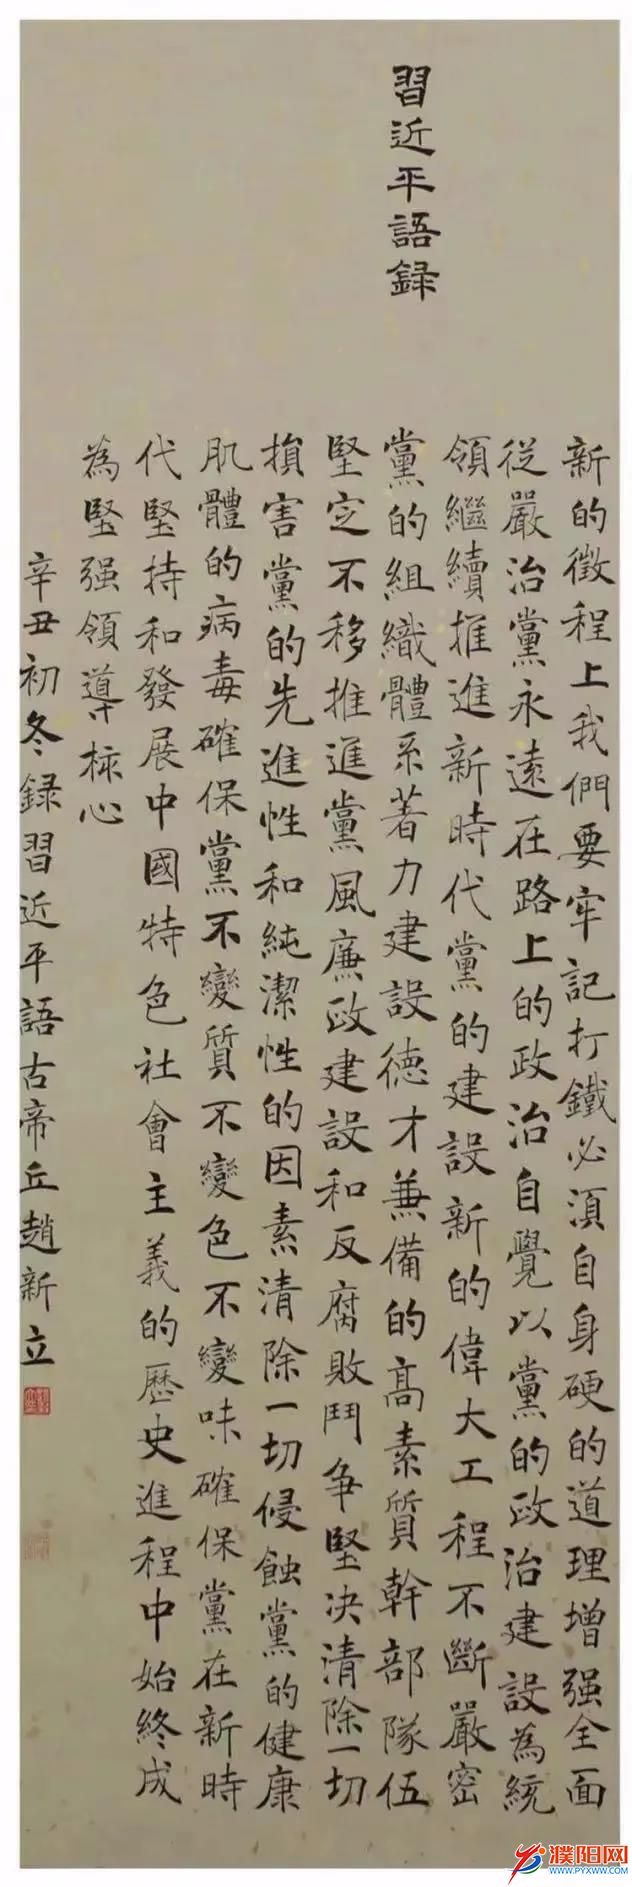 習近平語録
新的徵程上我們要牢記打鐵必須自身硬的道理增强全面
從嚴治黨永遠在路上的政治自覺以黨的政治建設為統
領繼續推進新時代黨的建設新的偉大工程不斷嚴密
黨的組織體系著力建設德才兼備的高素質幹部隊伍
堅定不移推進黨風廉政建設和反腐敗鬥争堅决清除一切
損害黨的先進性和純潔性的因素清除一切侵蝕黨的健康
肌體的病毒確保黨不變質不變色不變味確保黨在新時
代堅持和發展中國特色社會主義的歷史進程中始終成
為堅强領導核心
辛丑初冬録習近平語古帝丘趙新立
濮阳网
WWW.PYXWW.COM